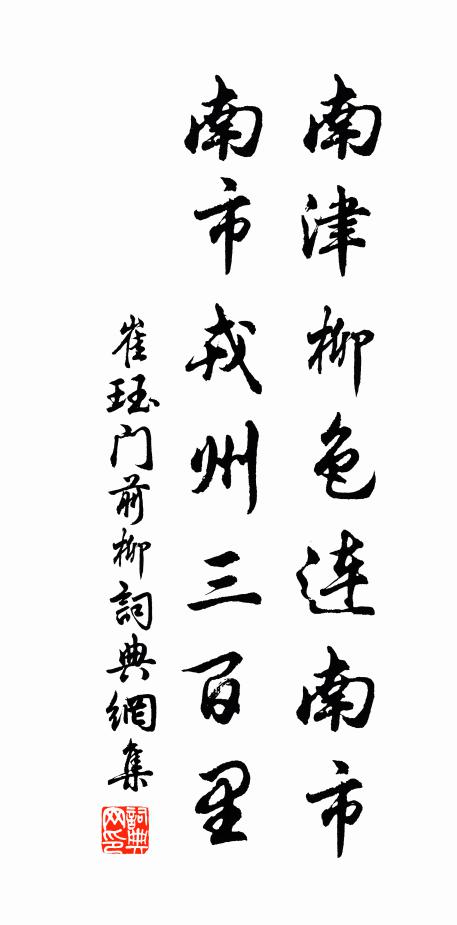 南津柳色連南市
南市戎州三百里
崔珏門前柳詞典網集
詞典網印